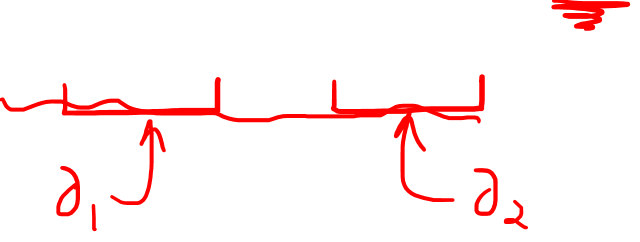 ∂₁ ∂₂